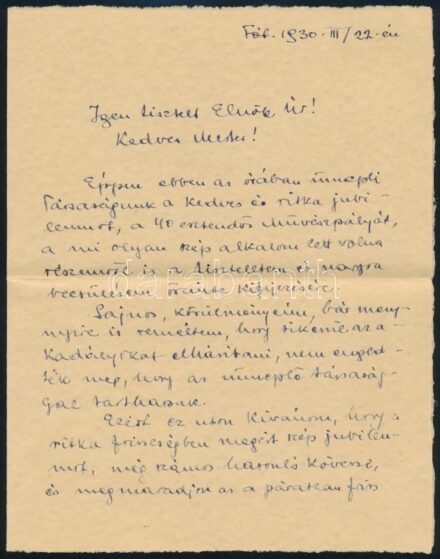 Fót. 1930. III/22-én
Igen tisztelt Elnök Úr!
Kedves Mester!
Éppen ebben az órában ünnepli
Társaságunk a kedves és ritka jubi-
leumot, a 40 esztendős művészpályát,
a mi olyan szép alkalom lett volna
részemről is a tiszteletem és nagyra
becsülésem őszinte kifejezésére.
Sajnos, körülményeim, bár meny-
nyire is reméltem, hogy sikerül az a-
kadályokat elhárítani, nem enged-
ték meg, hogy az ünneplő társaság-
gal tarthassak.
Ezért ez uton kívánom, hogy a
ritka frisseségben megért szép jubileu-
mot, még számos hasonló kövesse,
és megmaradjon az a páratlan friss
darabanth